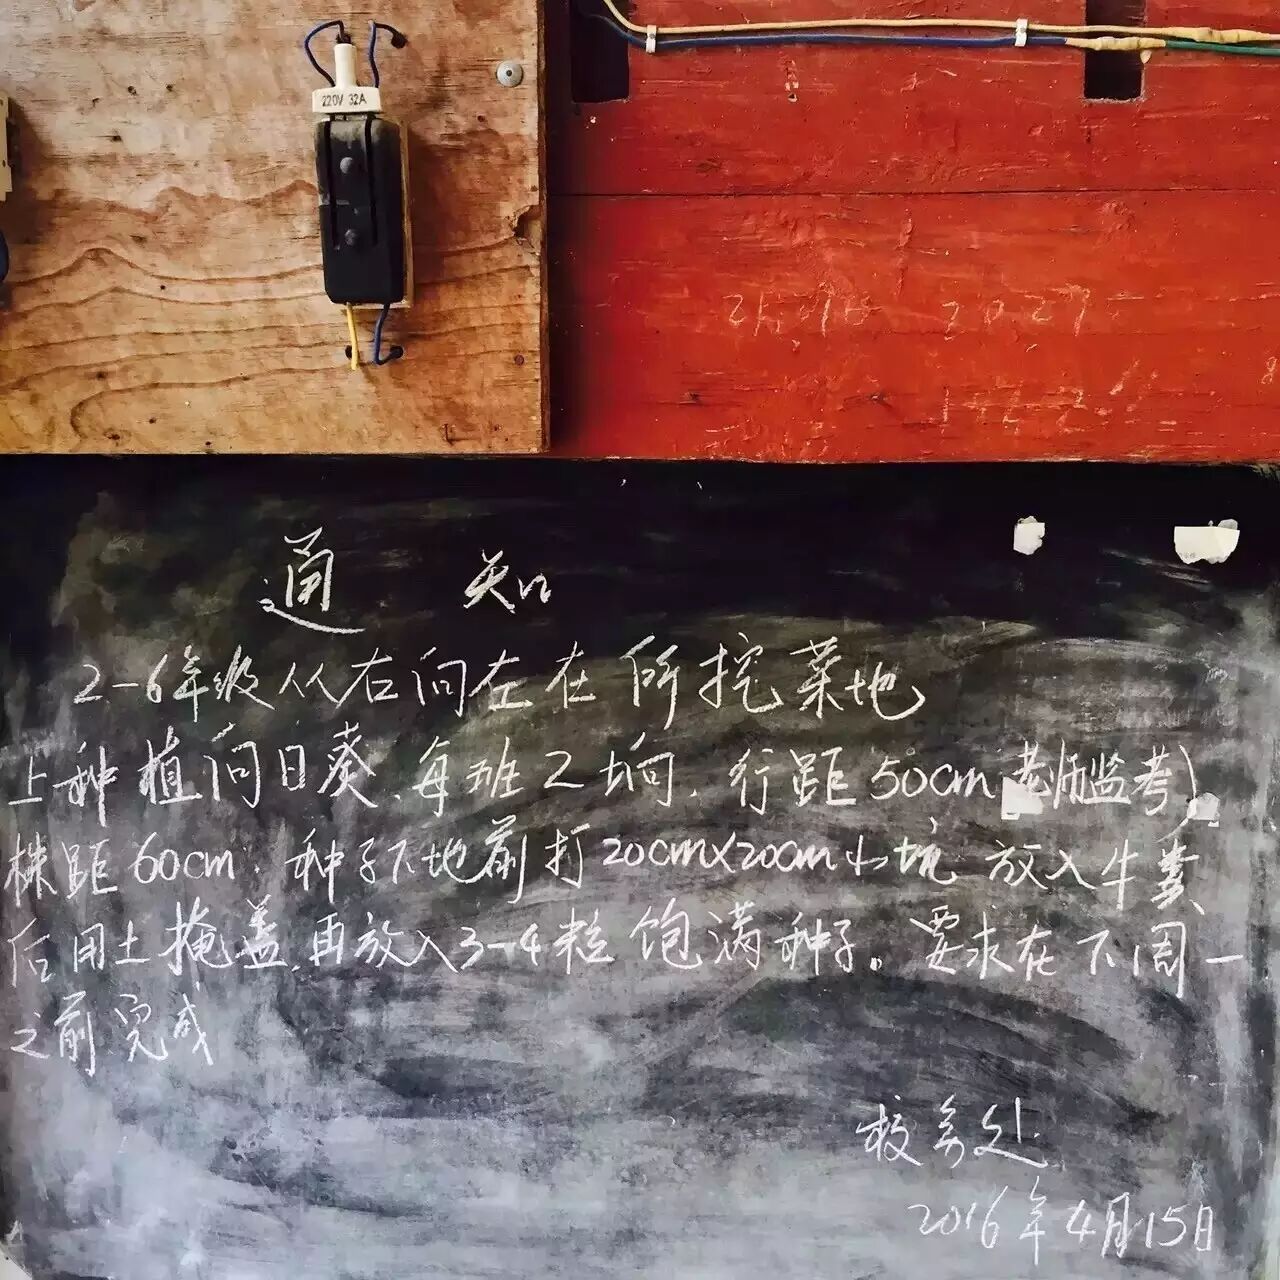 220V 32A
通 知
2-6年级从右向左在所挖菜地
上种植向日葵、每班2垧、行距50cm(老师监考)
株距60cm、种子下地前打20cm×20cm小坑 放入牛粪
后用土掩盖、再放入3-4粒饱满种子。要求在下周一
之前完成
校务处
2016年4月15日